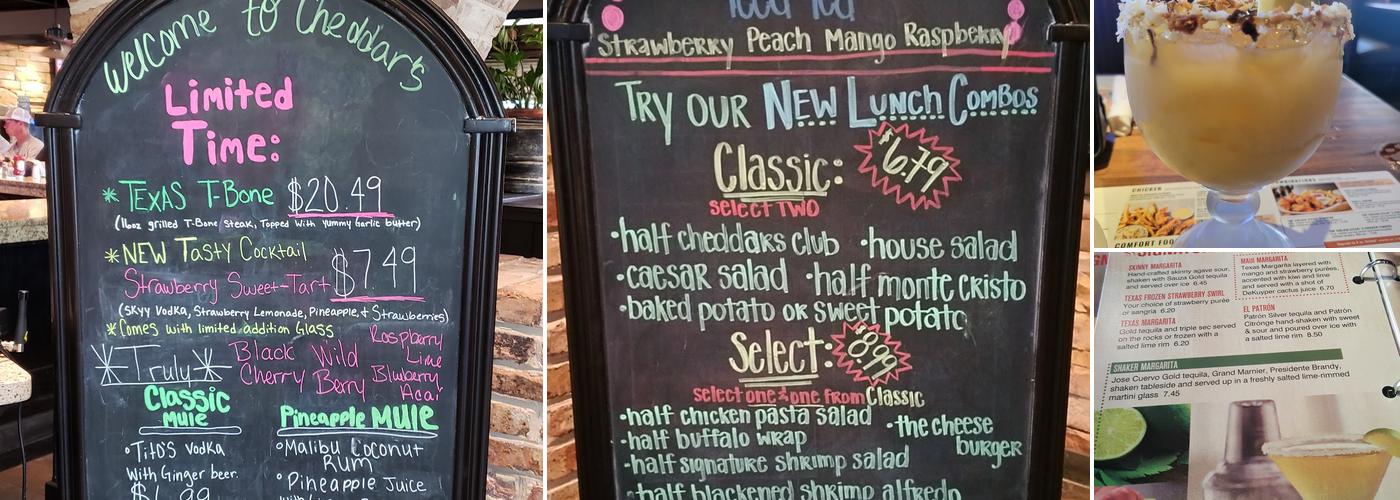 Welcome to Cheddar's
Limited
Time:
* TEXAS T-Bone $20.49
(16oz grilled T-Bone Steak, Topped With Yummy Garlic butter)
* NEW Tasty Cocktail
Strawberry Sweet-Tart $7.49
(SKyy Vodka, Strawberry Lemonade, Pineapple, & Strawberries)
* Comes with limited addition Glass
Truly
Black Cherry
Wild Berry
Raspberry Lime
Bluberry Acai
Classic
Mule
• TITO'S Vodka
With Ginger beer.
Pineapple MULE
• Malibu Coconut
Rum
• Pineapple Juice
Iced Tea
Strawberry Peach Mango Raspberry
TRY OUR NEW LUNCH COMBOS
Classic: $6.79
select TWO
• half cheddars club • house salad
• caesar salad • half monte cristo
• baked potato or sweet potato
Select: $8.99
select one & one from Classic
• half chicken pasta salad • the cheese
burger
• half buffalo wrap
• half signature shrimp salad
• half blackened shrimp alfredo
CHICKEN
COMFORT FOO
SKINNY MARGARITA
Hand-crafted skinny agave sour,
shaken with Sauza Gold tequila
and served over ice 6.45
TEXAS FROZEN STRAWBERRY SWIRL
Your choice of strawberry purée
or sangria 6.20
TEXAS MARGARITA
Gold tequila and triple sec served
on the rocks or frozen with a
salted lime rim 6.20
MAUI MARGARITA
Texas Margarita layered with
mango and strawberry purées,
accented with kiwi and lime
and served with a shot of
DeKuyper cactus juice 6.70
EL PATRÓN
Patrón Silver tequila and Patrón
Citrónge hand-shaken with sweet
& sour and poured over ice with
a salted lime rim 8.50
SHAKER MARGARITA
Jose Cuervo Gold tequila, Grand Marnier, Presidente Brandy,
shaken tableside and served up in a freshly salted lime-rimmed
martini glass 7.45